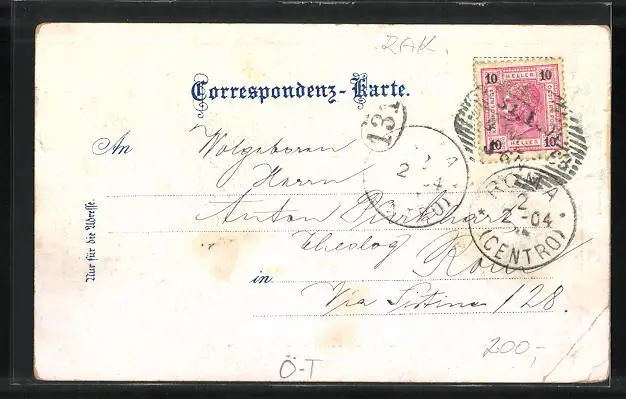 RAK.
Correspondenz-Karte.
10 HELLER 10
10 HELLER 10
131
An Wolgeboren
Herrn
2
04
ROMA
2
2-04
(CENTRO)
Anton
Theolog Rom
in
Via Sistina 128.
Nur für die Adresse.
200,-
Ö-T